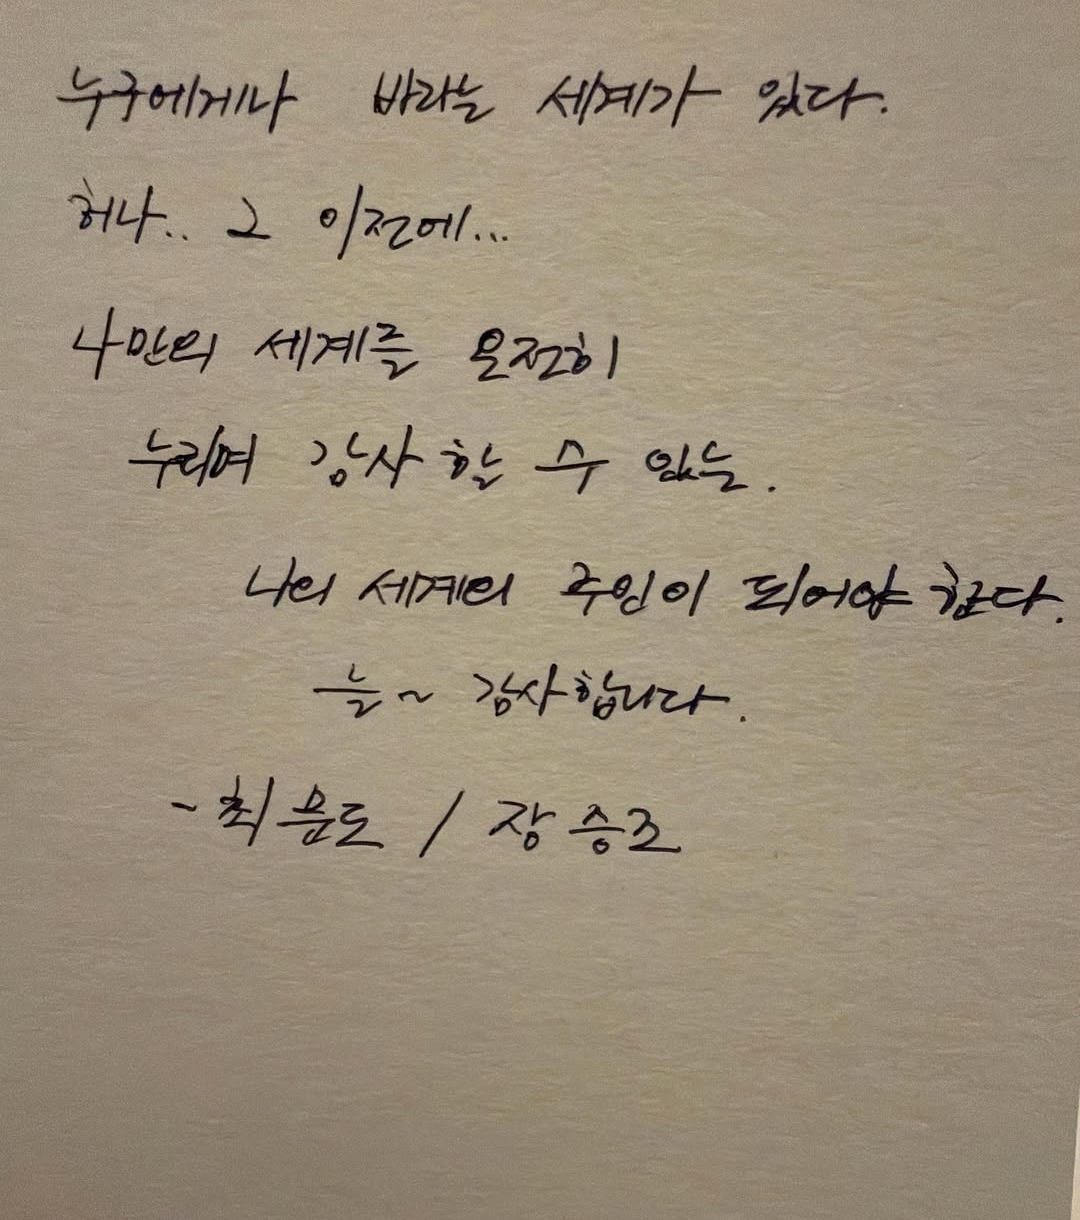 누구에게나 바라는 세계가 있다.
허나.. 그 이전에...
나만의 세계를 온전히
누리며 감사할 수 있는.
나의 세계의 주인이 되어야 한다.
늘~ 감사합니다.
- 최문도 / 장승조